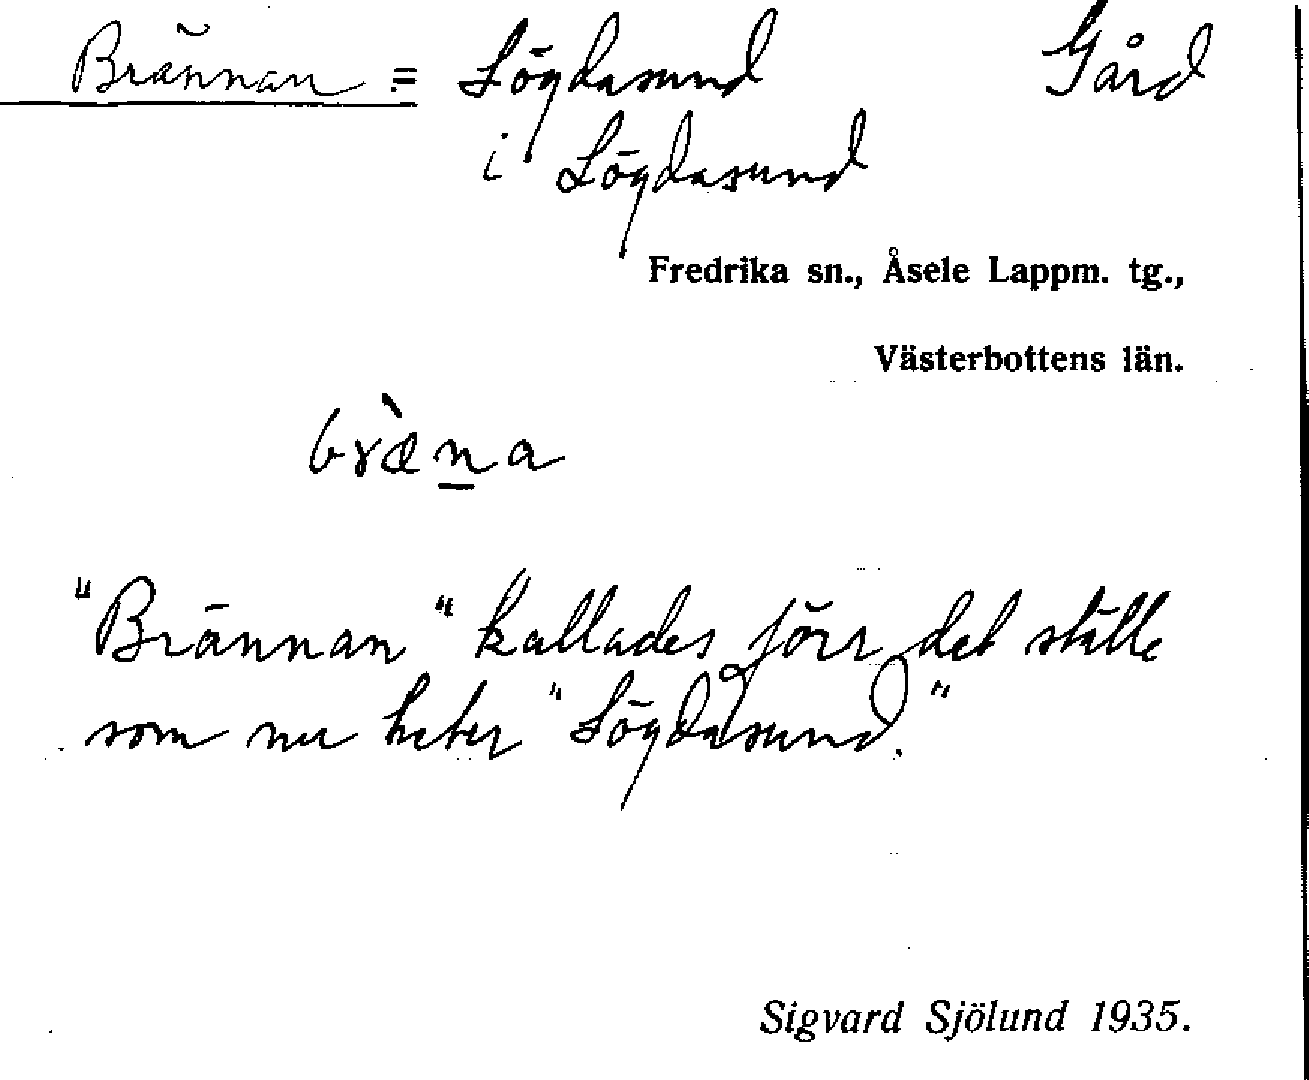 Brännan = Lögdasund Gård
i Lögdasund
Fredrika sn., Åsele Lappm. tg.,
Västerbottens län.
bræ̀n̲a
"Brännan" kallades förr det ställe
som nu heter "Lögdasund."
Sigvard Sjölund 1935.